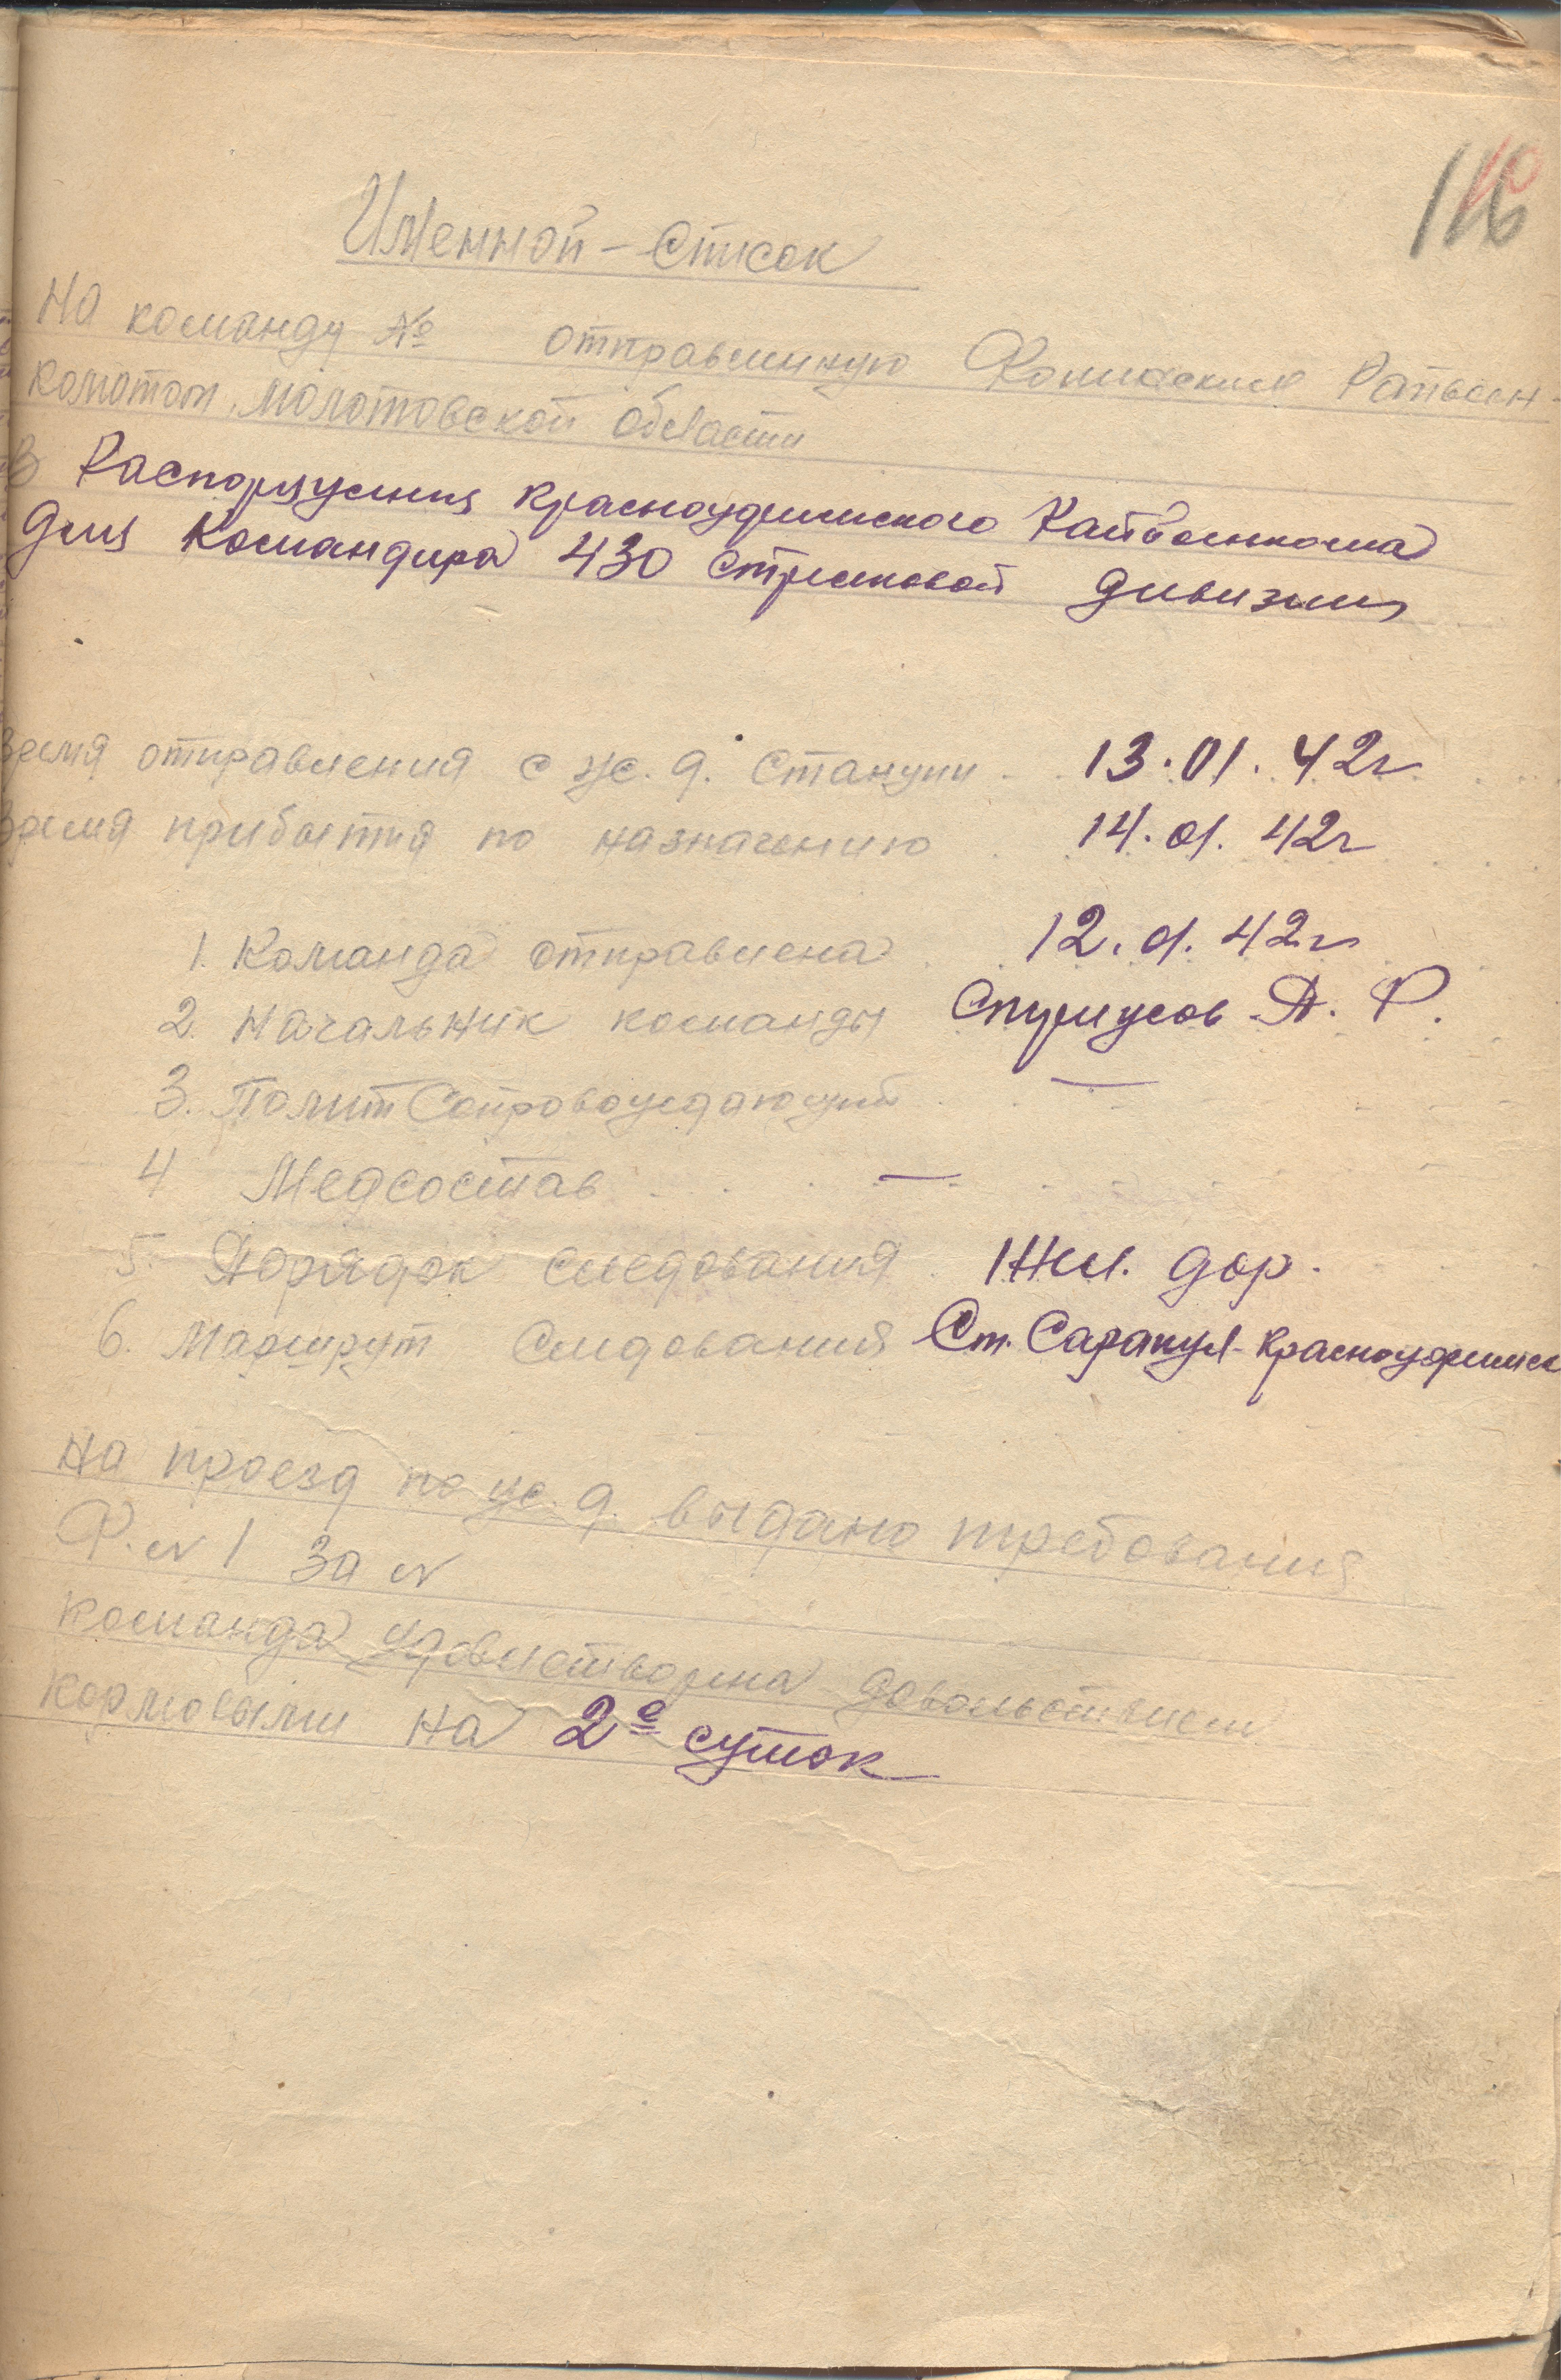 Именной - список
На команду № отправленную Фокинским Райвоен-
коматом, Молотовской области
В Распоряжения Красноуфимского Райвоенкома
для командира 430 стрелковой дивизии
время отправления с ж. д. станции 13.01.42г
время прибытия по назначению 14.01.42г
1. Команда отправлена 12.01.42г
2. Начальник команды А. Ф.
3. Полит Сопровождающий —
4 Медсостав —
5. Порядок следования Жел. дор.
6. Маршрут следования Ст. Сарапул - Красноуфимск
на проезд по ж. д. выдано требования
Ф. № 1 за №
команда удовлетворена довольствием
кормовыми на 2е суток